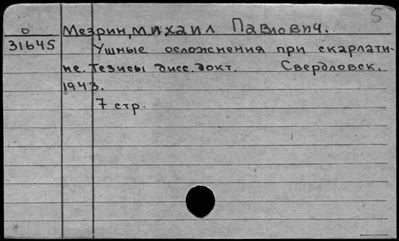 5
О Мезрин, Михаил Павлович.
31645 Ушные осложнения при скарлати-
не. Тезисы дисс. докт. Свердловск.
1943.
7 стр.